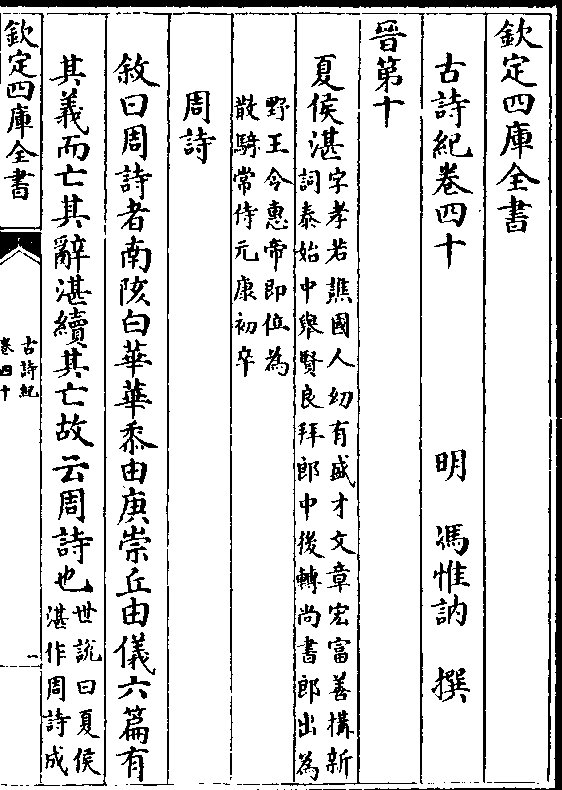 欽定四庫全書
古詩紀卷四十
明 馮惟訥 撰
晉第十
夏侯湛
字孝若譙國人幼有盛才文章宏富善構新
詞泰始中舉賢良拜郎中後轉尚書郎出為
野王令惠帝即位為
散騎常侍元康初卒
周詩
敘曰周詩者南陔白華華黍由庚崇丘由儀六篇有
其義而亡其辭湛續其亡故云周詩也
世説曰夏侯
湛作周詩成
欽定四庫全書
古詩紀
卷四十
一